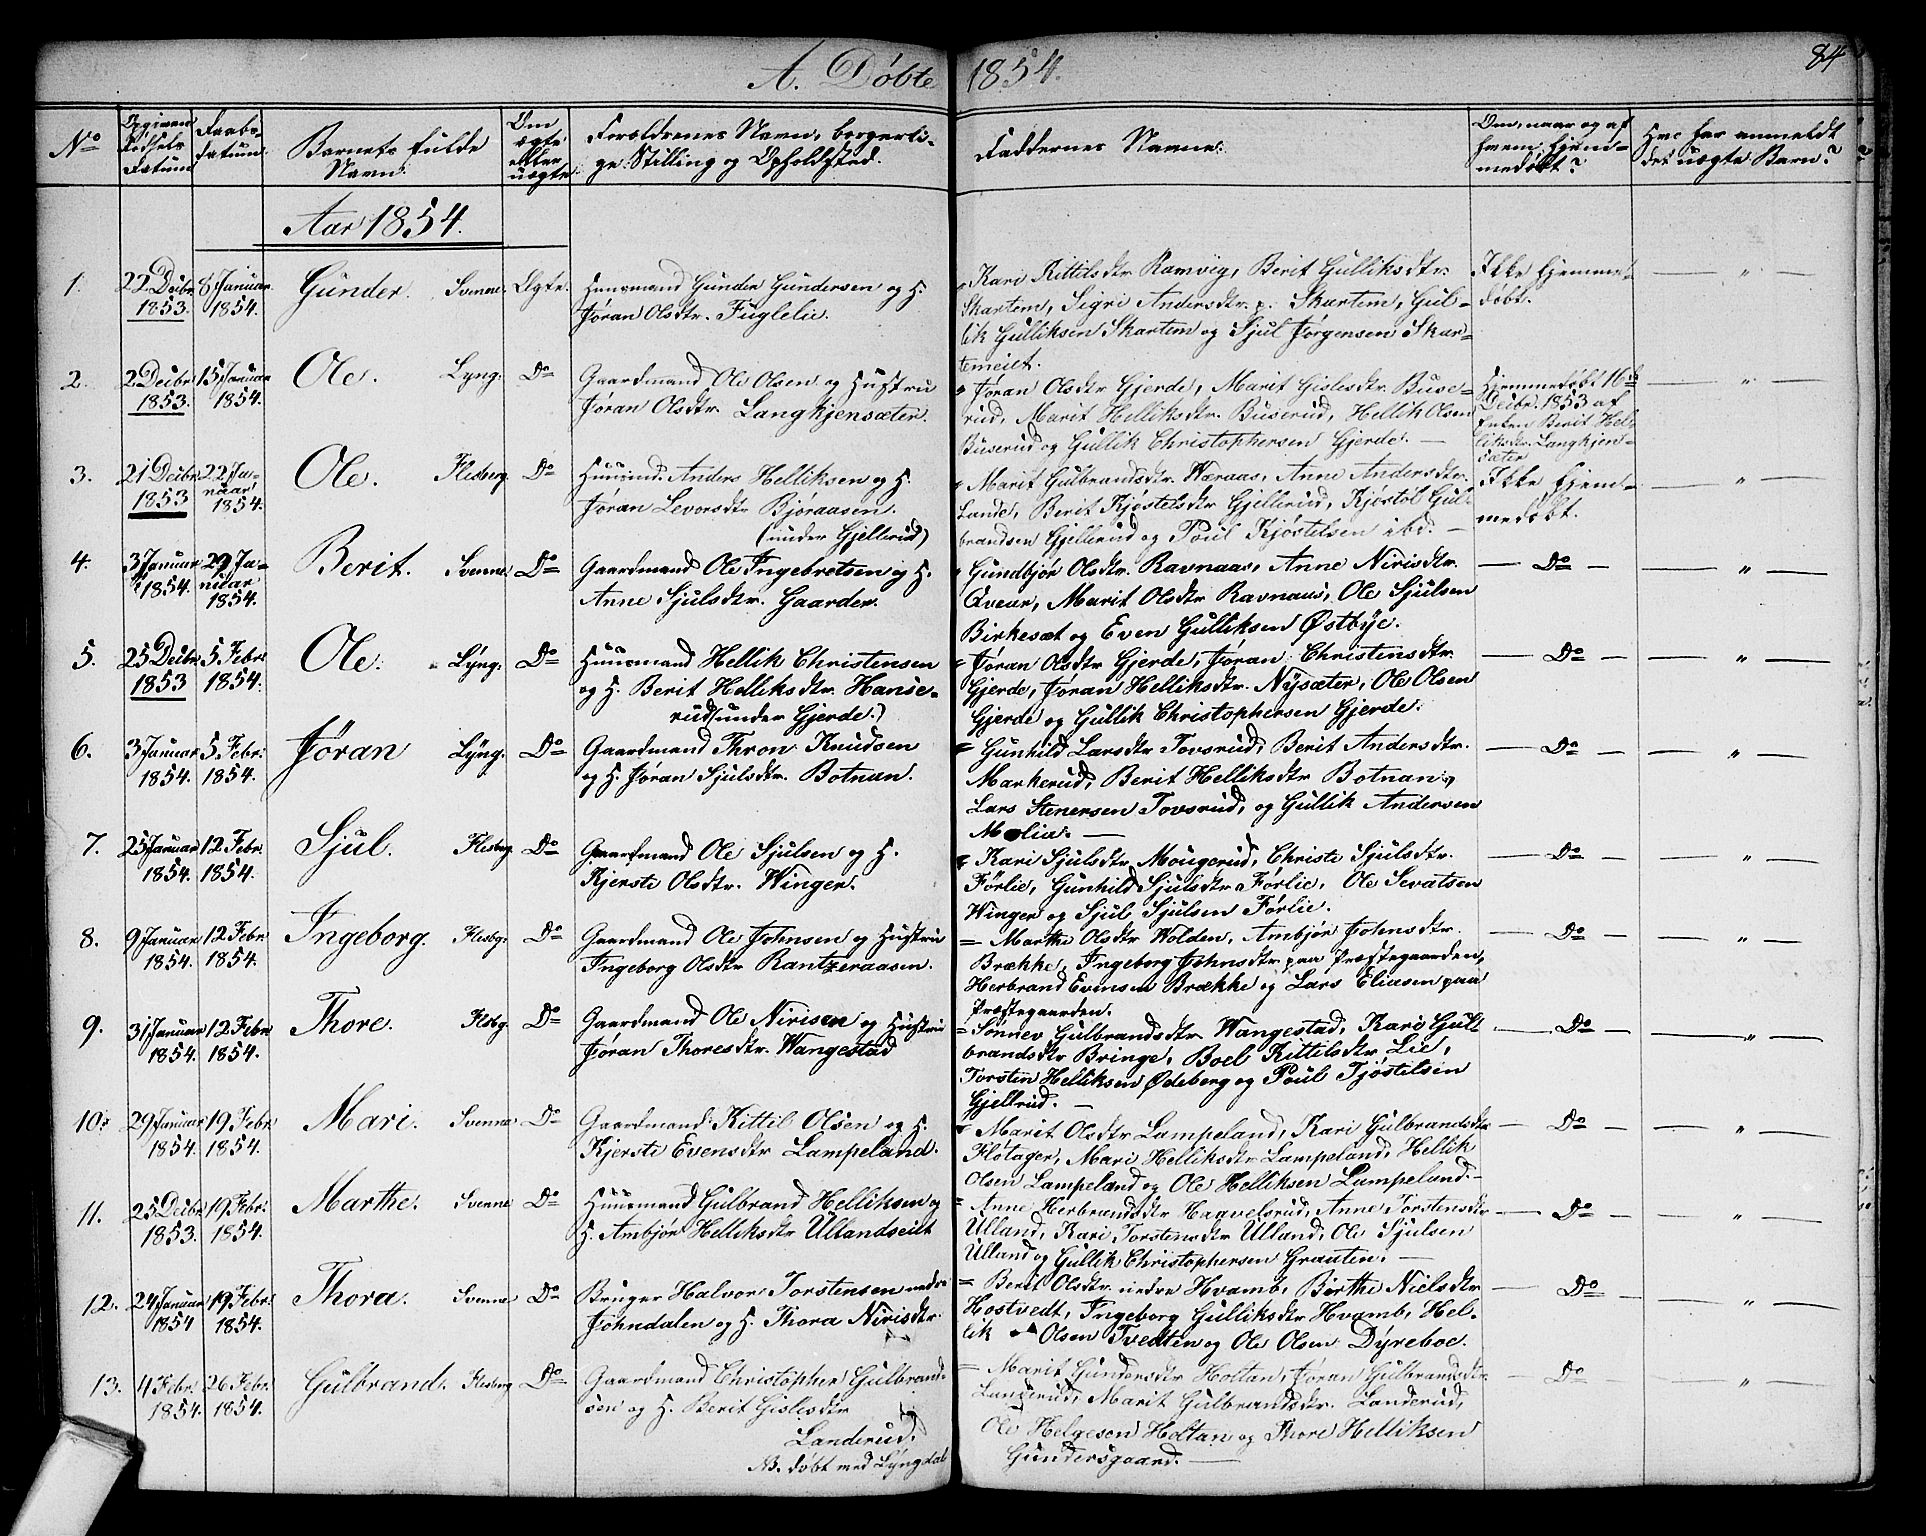 A. Døbte 1854. 84
No
Opgiven Fødsels Datum
Daabs-datum
Barnets fulde Navn.
Om ægte eller uægte.
Forældrenes Navn, borgerlige Stilling og Opholdssted.
Faddernes Navne.
Om, naar og af hvem hjemmedøbt?
Hvo har anmeldt det uægte Barn?
Aar 1854.
1. 22 Decbr. 1853. 8 Januar 1854. Gunder. Svenne. Ægte.
Huusmand Gunder Gundersen og H.
Jøran Olsdtr. Fuglelie.
Kari Kittilsdtr. Ramvig, Berit Gulliksdtr.
Skartem, Sigri Andersdtr. p. Skartem, Gul-
lik Gulliksen Skartem og Sjul Jørgensen Skar-
temeiet.
Ikke hjemme-
døbt.
2. 2 Decbr. 1853. 15 Januar 1854. Ole. Lyng. Do
Gaardmand Ole Olsen og Hustru
Jøran Olsdtr. Langhjensæter.
Jøran Olsdtr Gjerde, Marit Gislesdtr. Buse-
rud, Marit Helliksdtr. Buserud, Hellik Olsen
Buserud og Gullik Christophersen Gjerde. —
Hjemmedøbt 16de
Decbr. 1853 af
Enken Berit Hel-
liksdtr. Langhjen-
sæter
3. 21 Decbr. 1853 22 Ja-
nuar 1854. Ole. Flesberg. Do
Huusmd. Anders Helliksen og H.
Jøran Levorsdtr Bjøraasen.
(under Gjellerud)
Marit Gulbrandsdtr. Wæraas, Anne Andersdtr.
Lande, Berit Kjøstelsdtr Gjellerud, Kjøstøl Gul-
brandsen Gjellerud og Poul Kjøstelsen ibd. —
Ikke hjem-
medøbt.
4. 3 Januar 1854. 29 Ja-
nuar 1854. Berit. Svenne. Do
Gaardmand Ole Ingebretsen og H.
Anne Sjulsdtr. Gaarder.
Gundbjør Olsdtr. Ravnaas, Anne Nirisdtr.
Qvear, Marit Olsdtr Ravnaas, Ole Sjulsen
Birkesæt og Even Gulliksen Østbye.
— Do —
5. 25 Decbr. 1853 5 Febr. 1854. Ole. Lyng. Do
Huusmand Hellik Christensen
og H. Berit Helliksdtr. Hanse-
rud (under Gjerde.)
Jøran Olsdtr Gjerde, Jøran Christensdtr.
Gjerde, Jøran Helliksdtr. Nysæter, Ole Olsen
Gjerde og Gullik Christophersen Gjerde.
— Do —
6. 3 Januar 1854. 5 Febr. 1854. Jøran Lyng. Do
Gaardmand Thron Knudsen
og H. Jøran Sjulsdtr. Botnan.
Gunhild Larsdtr Tovsrud, Berit Andersdtr.
Markerud, Berit Helliksdtr Botnan,
Lars Stenersen Tovsrud, og Gullik Andersen
Molia. —
— Do —
7. 25 Januar 1854. 12 Febr. 1854. Sjul. Flesbg. Do
Gaardmand Ole Sjulsen og H.
Kjersti Olsdtr. Winger.
Kari Sjulsdtr Mougerud, Christi Sjulsdtr.
Førlie, Gunhild Sjulsdtr Førlie, Ole Sevatsen
Winger og Sjul Sjulsen Førlie.
— Do —
8. 9 Januar 1854. 12 Febr 1854. Ingeborg. Flesbg. Do
Gaardmand Ole Johnsen og Hustru
Ingeborg Olsdtr Rantzeraasen.
Marthe Olsdtr Wolden, Ambjør Johnsdtr.
Brække, Ingeborg Johnsdtr paa Præstegaarden,
Herbrand Evensen Brække og Lars Eliasen paa
Præstegaarden.
— Do —
9. 31 Januar 1854. 12 Febr 1854. Thore. Flsbg. Do
Gaardmand Ole Nirisen og Hustru
Jøran Thoresdtr. Wangestad
Sønnev Gulbrandsdtr. Wangestad, Kari Gul-
brandsdtr Bringe, Boel Kittilsdtr Lie,
Torsten Helliksen Ødeberg og Poul Tjøstelsen
Gjellrud. —
— Do —
10. 29 Januar 1854. 19 Febr. 1854. Mari. Svenne Do
Gaardmand Kittil Olsen og H.
Kjersti Evensdtr Lampeland.
Marit Olsdtr Lampeland, Kari Gulbrandsdtr
Flotager, Mari Helliksdtr Lampeland, Hellik
Olsen Lampeland og Ole Helliksen Lampeland. —
— Do —
11. 25 Decbr 1853. 19 Febr. 1854. Marthe. Svenne Do
Huusmand Gulbrand Helliksen og
H. Ambjør Helliksdtr Ullandseiet
Anne Herbrandsdtr Hagvelsrud, Anne Torstensdtr
Ulland, Kari Torstensdtr Ulland, Ole Sjulsen
Ulland og Gullik Christophersen Grauten. —
— Do —
12. 24 Januar 1854 19 Febr. 1854. Thora. Svenne Do
Bruger Halvor Torstensen nedre
Johndalen og H. Thora Nirisdtr.
Berit Olsdtr. nedre Hvamb, Birthe Nielsdtr
Hostvedt, Ingeborg Gulliksdtr Hvamb, Hel-
lik Olsen Tvedten og Ole Olsen Dyreboe.
— Do —
13. 4 Febr. 1854. 26 Febr. 1854. Gulbrand. Flesberg Do
Gaardmand Christopher Gulbrand-
sen og H. Berit Gislesdtr
Landerud.
NB. døbt med Lyngdal
Marit Gundersdtr Holtan, Jøran Gulbrandsdtr
Landerud, Marit Gulbrandsdtr. Landerud,
Ole Helgesen Holtan og Thore Helliksen
Gundersgaard. —
— Do